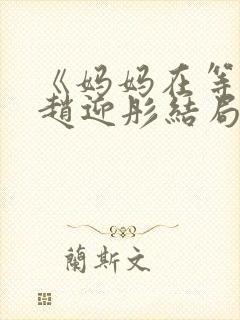 《妈妈在等
趙迎彤結局
蘭斯文